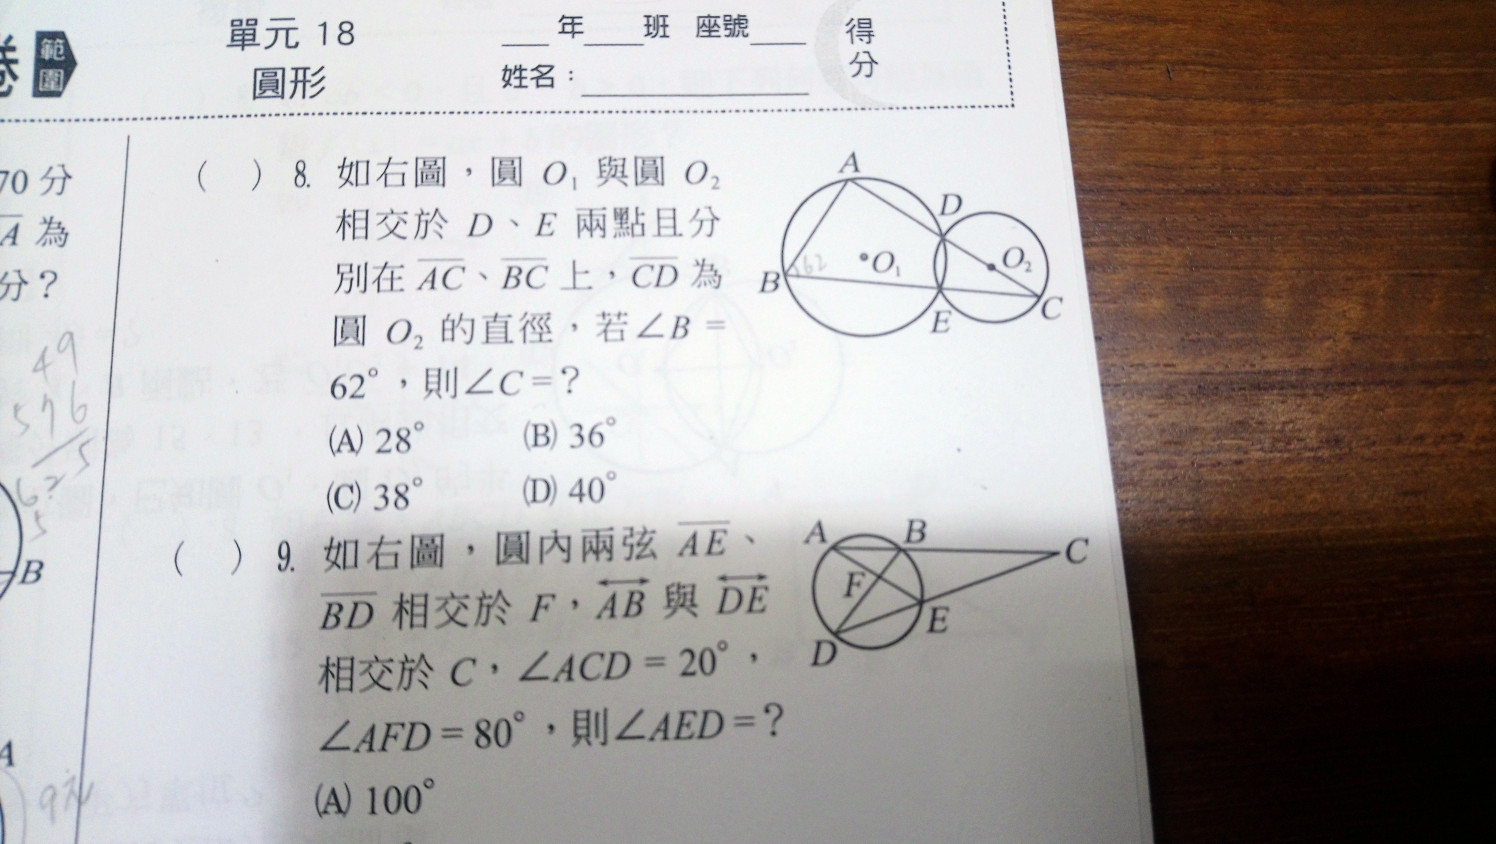 卷 範圍
單元 18
圓形
年 班 座號
姓名：
得分
70 分
A 為
分？
49
576
B
A
( ) 8. 如右圖，圓 O₁ 與圓 O₂
相交於 D、E 兩點且分
別在 AC、BC 上，CD 為
圓 O₂ 的直徑，若∠B =
62°，則∠C =？
(A) 28° (B) 36°
(C) 38° (D) 40°
A
D
B
62
O₁
O₂
E
C
( ) 9. 如右圖，圓內兩弦 AE、
BD 相交於 F，AB 與 DE
相交於 C，∠ACD = 20°，
∠AFD = 80°，則∠AED =？
(A) 100°
A
B
C
F
E
D